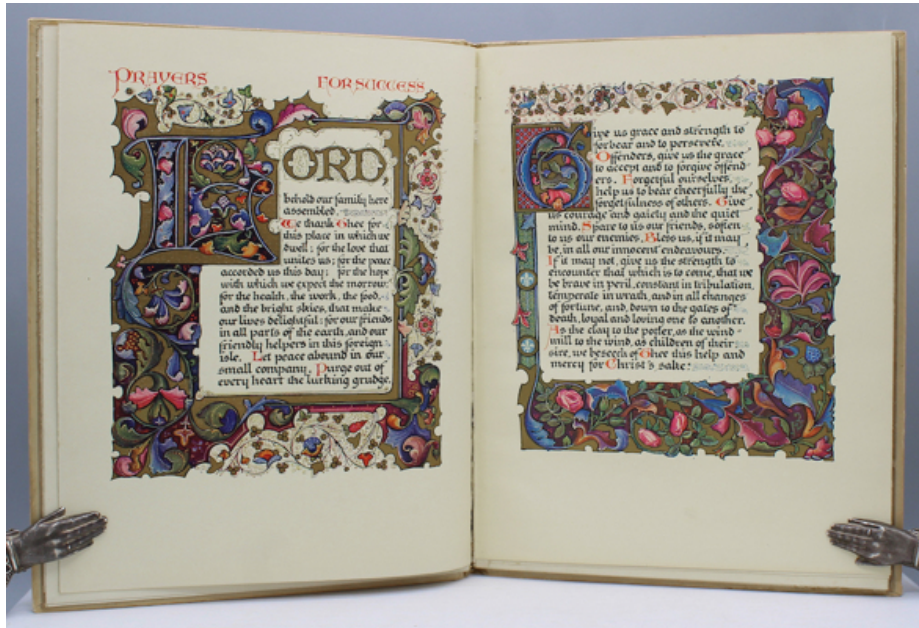 PRAYERS FOR SUCCESS
LORD,
behold our family here
assembled.
We thank Thee for
this place in which we
dwell; for the love that
unites us; for the peace
accorded us this day; for the hope
with which we expect the morrow;
for the health, the work, the food,
and the bright skies, that make
our lives delightful; for our friends
in all parts of the earth, and our
friendly helpers in this foreign
isle. Let peace abound in our
small company. Purge out of
every heart the lurking grudge.
Give us grace and strength to
forbear and to persevere.
Offenders, give us the grace
to accept and to forgive offend
ers. Forgetful ourselves,
help us to bear cheerfully the
forgetfulness of others. Give
us courage and gaiety and the quiet
mind. Spare to us our friends, soften
to us our enemies. Bless us, if it may
be, in all our innocent endeavours.
If it may not, give us the strength to
encounter that which is to come, that we
be brave in peril, constant in tribulation,
temperate in wrath, and in all changes
of fortune, and, down to the gates of
death, loyal and loving one to another.
As the clay to the potter, as the wind
mill to the wind, as children of their
sire, we beseech of Thee this help and
mercy for Christ's sake.